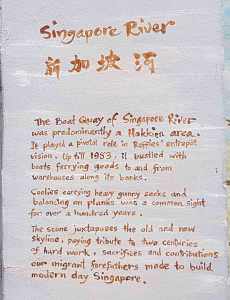 Singapore River
新加坡河
The Boat Quay of Singapore River
was predominantly a Hokkien area.
It played a pivotal role in Raffles' entrepot
vision. Up till 1983, it bustled with
boats ferrying goods to and from
warehouses along its banks.
Coolies carrying heavy gunny sacks and
balancing on planks was a common sight
for over a hundred years.
The scene juxtaposes the old and new
skyline, paying tribute to two centuries
of hard work, sacrifices and contributions
our migrant forefathers made to build
modern day Singapore.